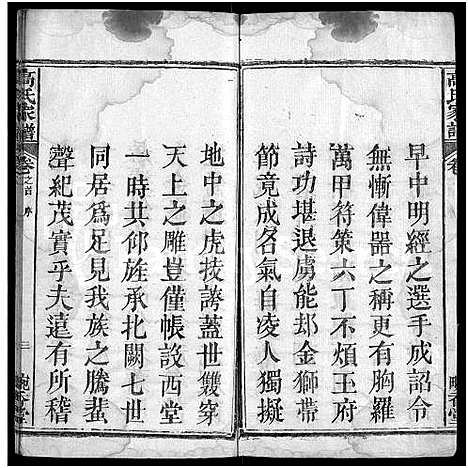 高氏家譜
卷
早中明經之選手成詔令
無慚偉器之稱更有胸羅
萬甲符策六丁不煩玉府
詩功堪退虜能却金獅帶
節竟成名氣自凌人獨擬
地中之虎技誇蓋世雙穿
天上之雕豈僅帳設西堂
一時共仰旌承北闕七世
同居爲足見我族之騰蜚
聲紀茂實乎夫遠有所稽
高氏家譜
卷之首 序